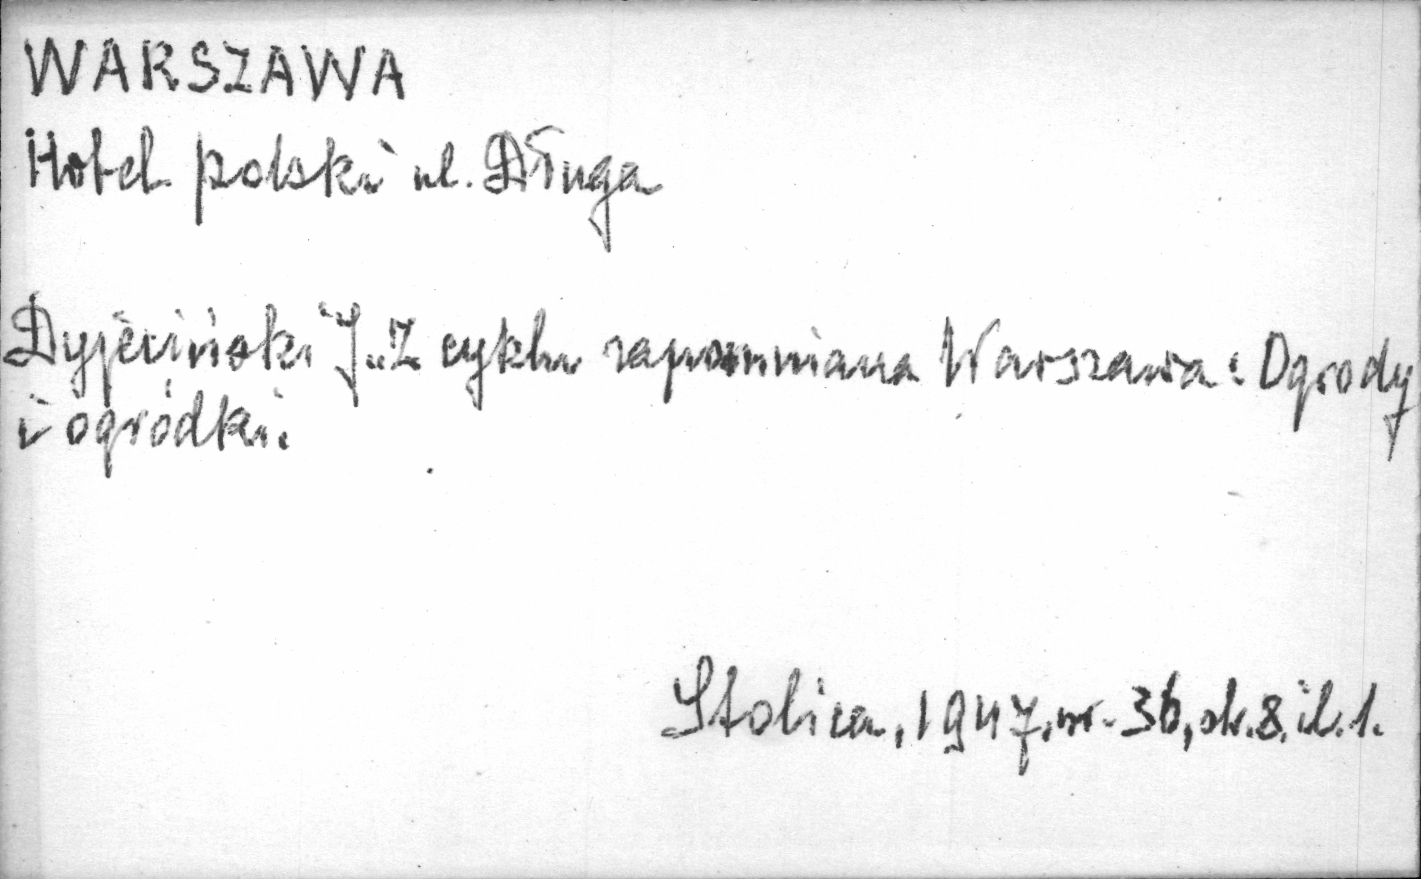 WARSZAWA
Hotel polski ul. Długa
Dyjeciński J. Z cyklu zapomniana Warszawa: Ogrody
i ogródki.
Stolica, 1947, nr. 36, str. 8, il. 1.